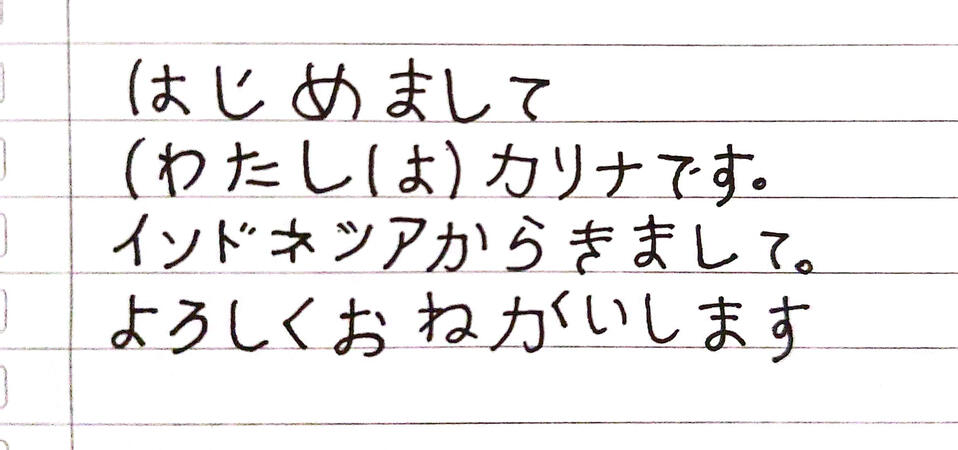 はじめまして
(わたしは)カリナです。
インドネツアからきまして。
よろしくおねがいします